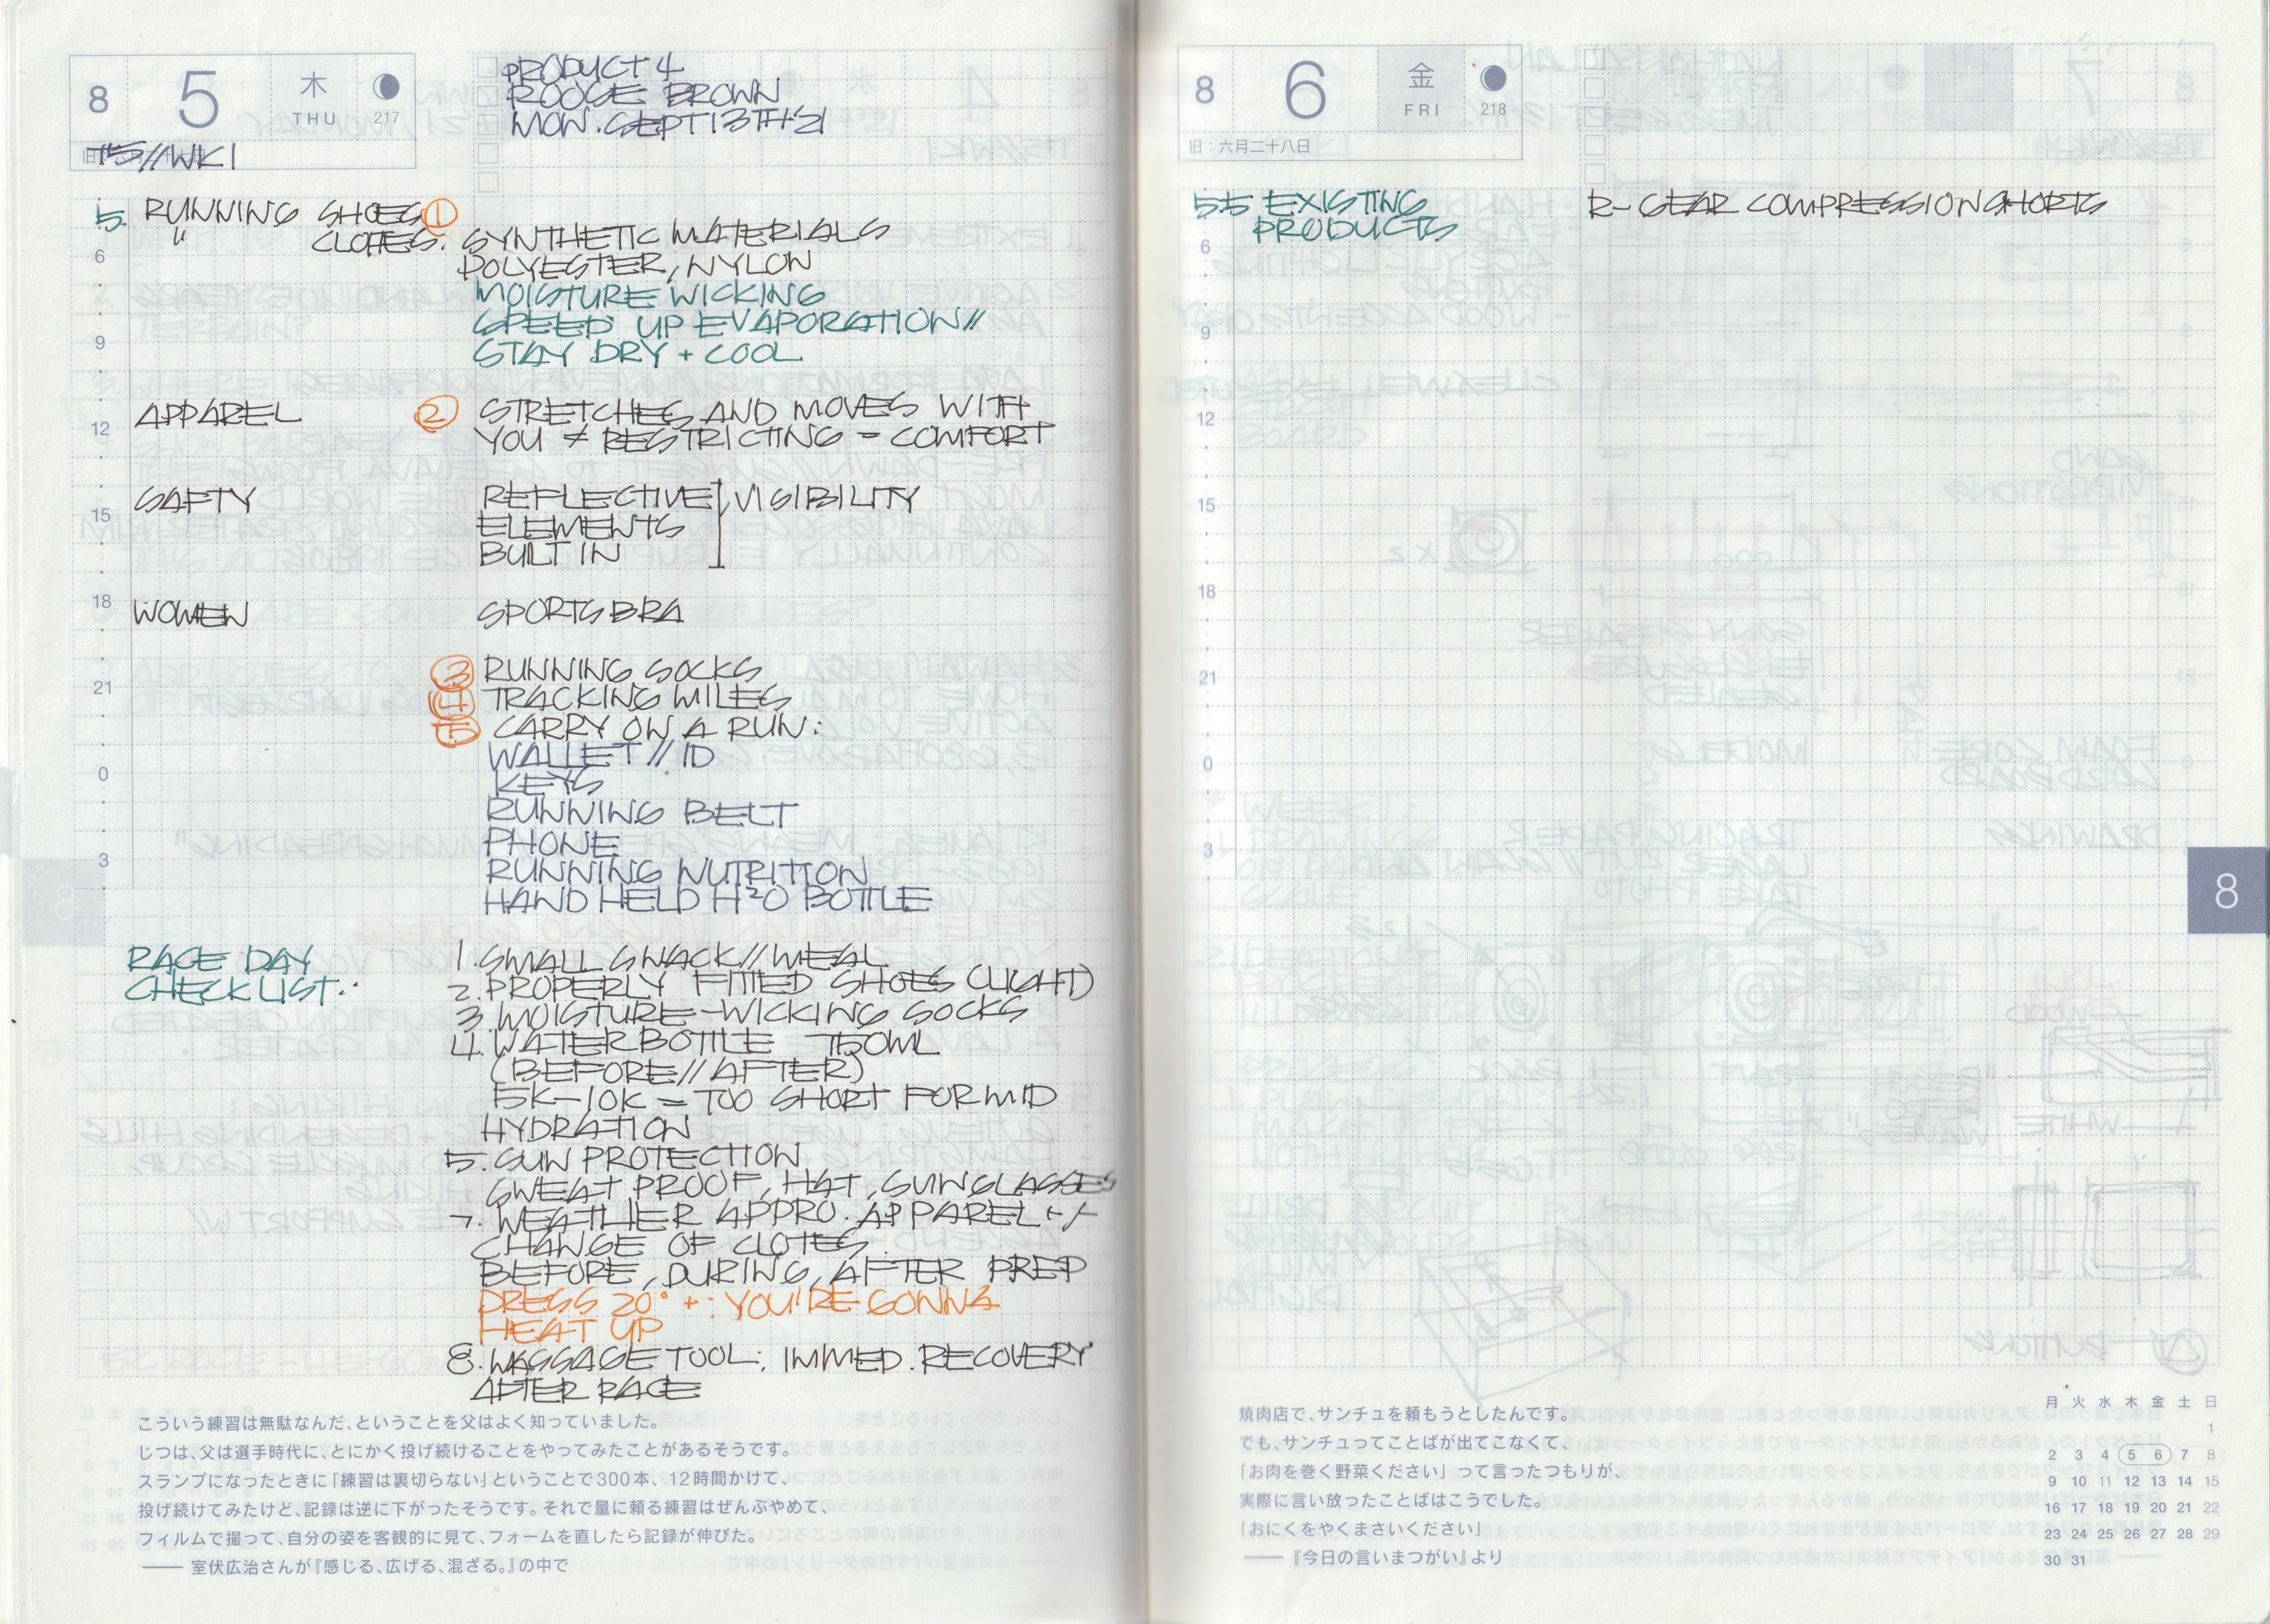 8 5 木 THU 217
PRODUCT 4
ROOGE BROWN
MON. SEPT 13TH '21
T5//WK1
5. RUNNING SHOES ①
" CLOTHES: SYNTHETIC MATERIALS
POLYESTER, NYLON
MOISTURE WICKING
SPEED UP EVAPORATION//
STAY DRY + COOL
APPAREL ② STRETCHES AND MOVES WITH
YOU ≠ RESTRICTING = COMFORT
SAFTY REFLECTIVE VISIBILITY
ELEMENTS
BUILT IN
WOMEN SPORTS BRA
③ RUNNING SOCKS
④ TRACKING MILES
⑤ CARRY ON A RUN:
WALLET // ID
KEYS
RUNNING BELT
PHONE
RUNNING NUTRITION
HAND HELD H²O BOTTLE
RACE DAY 1. SMALL SNACK // MEAL
CHECKLIST.. 2. PROPERLY FITTED SHOES (LIGHT)
3. MOISTURE-WICKING SOCKS
4. WATER BOTTLE 750ML
(BEFORE // AFTER)
5K-10K = TOO SHORT FOR MID
HYDRATION
5. SUN PROTECTION
SWEAT PROOF, HAT, SUNGLASSES
7. WEATHER APPRO. APPAREL +/-
CHANGE OF CLOTES.
BEFORE, DURING, AFTER PREP
DRESS 20° +: YOU'RE GONNA
HEAT UP
8. MASSAGE TOOL: IMMED. RECOVERY
AFTER RACE
6
9
12
15
18
21
0
3
こういう練習は無駄なんだ、ということを父はよく知っていました。
じつは、父は選手時代に、とにかく投げ続けることをやってみたことがあるそうです。
スランプになったときに「練習は裏切らない」ということで300本、12時間かけて、
投げ続けてみたけど、記録は逆に下がったそうです。それで量に頼る練習はぜんぶやめて、
フィルムで撮って、自分の姿を客観的に見て、フォームを直したら記録が伸びた。
—— 室伏広治さんが『感じる、広げる、混ざる。』の中で
8 6 金 FRI 218
旧：六月二十八日
5.5 EXISTING R-GEAR COMPRESSION SHORTS
PRODUCTS
6
9
12
15
18
21
0
3
8
焼肉店で、サンチュを頼もうとしたんです。
でも、サンチュってことばが出てこなくて、
「お肉を巻く野菜ください」って言ったつもりが、
実際に言い放ったことばはこうでした。
「おにくをやくまさいください」
—— 『今日の言いまつがい』より
月 火 水 木 金 土 日
1
2 3 4 5 6 7 8
9 10 11 12 13 14 15
16 17 18 19 20 21 22
23 24 25 26 27 28 29
30 31